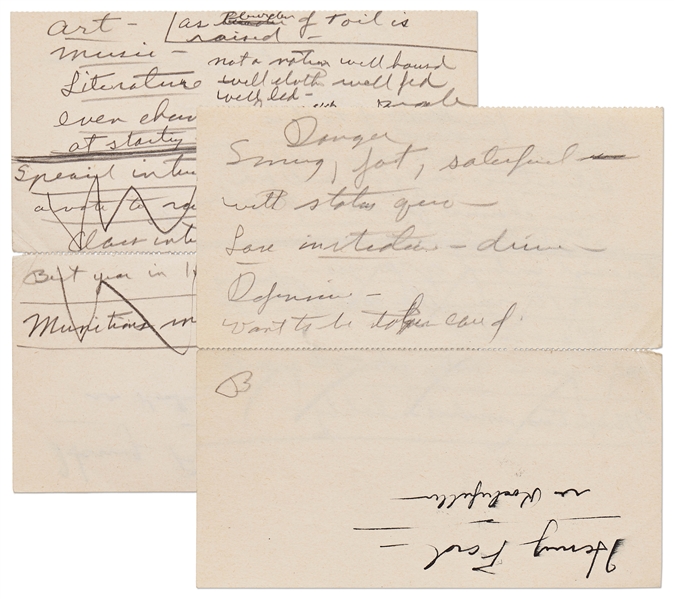 Art -
as of toil is
raised -
Music -
not a nation well housed
Literature
well cloth well fed
well led -
even chan
at starting
Special inte
a vote to
Class inte
Best year in 1
Munitions in
Danger
Smug, fat, satisfied
with status quo -
Lose initiative - drive -
Defensive -
want to be taken care of.
B
Henry Ford -
vs Rockefeller